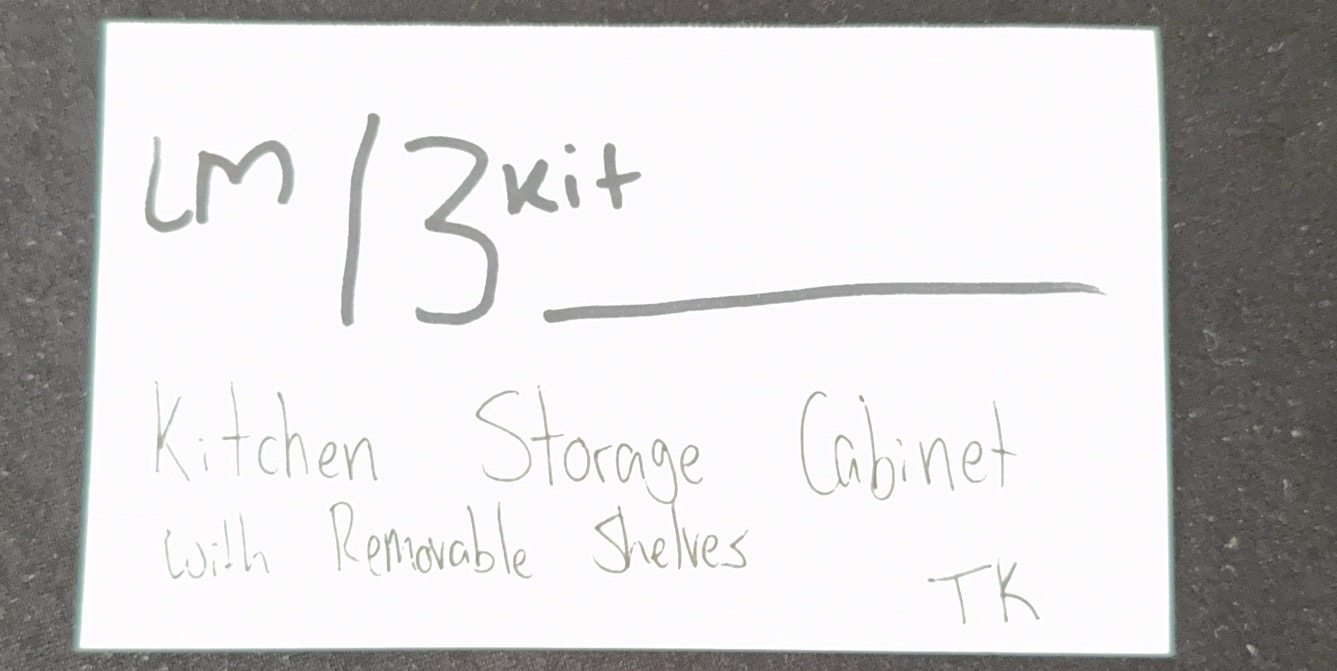 LM/3 Kit
Kitchen Storage Cabinet
with Removable Shelves
TK